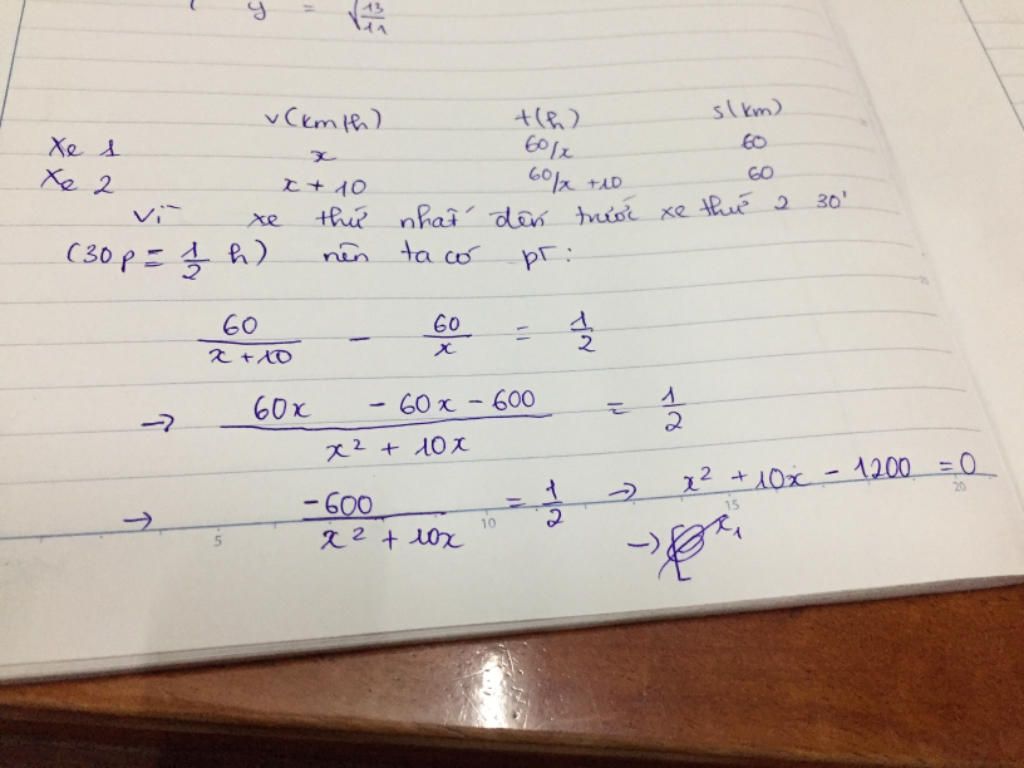 y = √13/11
v(km/h) t(h) s(km)
Xe 1 x 60/x 60
Xe 2 x + 10 60/x +10 60
Vì xe thứ nhất đến trước xe thứ 2 30'
(30p = 1/2 h) nên ta có pt:
60/(x+10) - 60/x = 1/2
→ (60x - 60x - 600)/(x² + 10x) = 1/2
→ -600/(x² + 10x) = 1/2 → x² + 10x - 1200 = 0
→ x₁
5 10 15 20